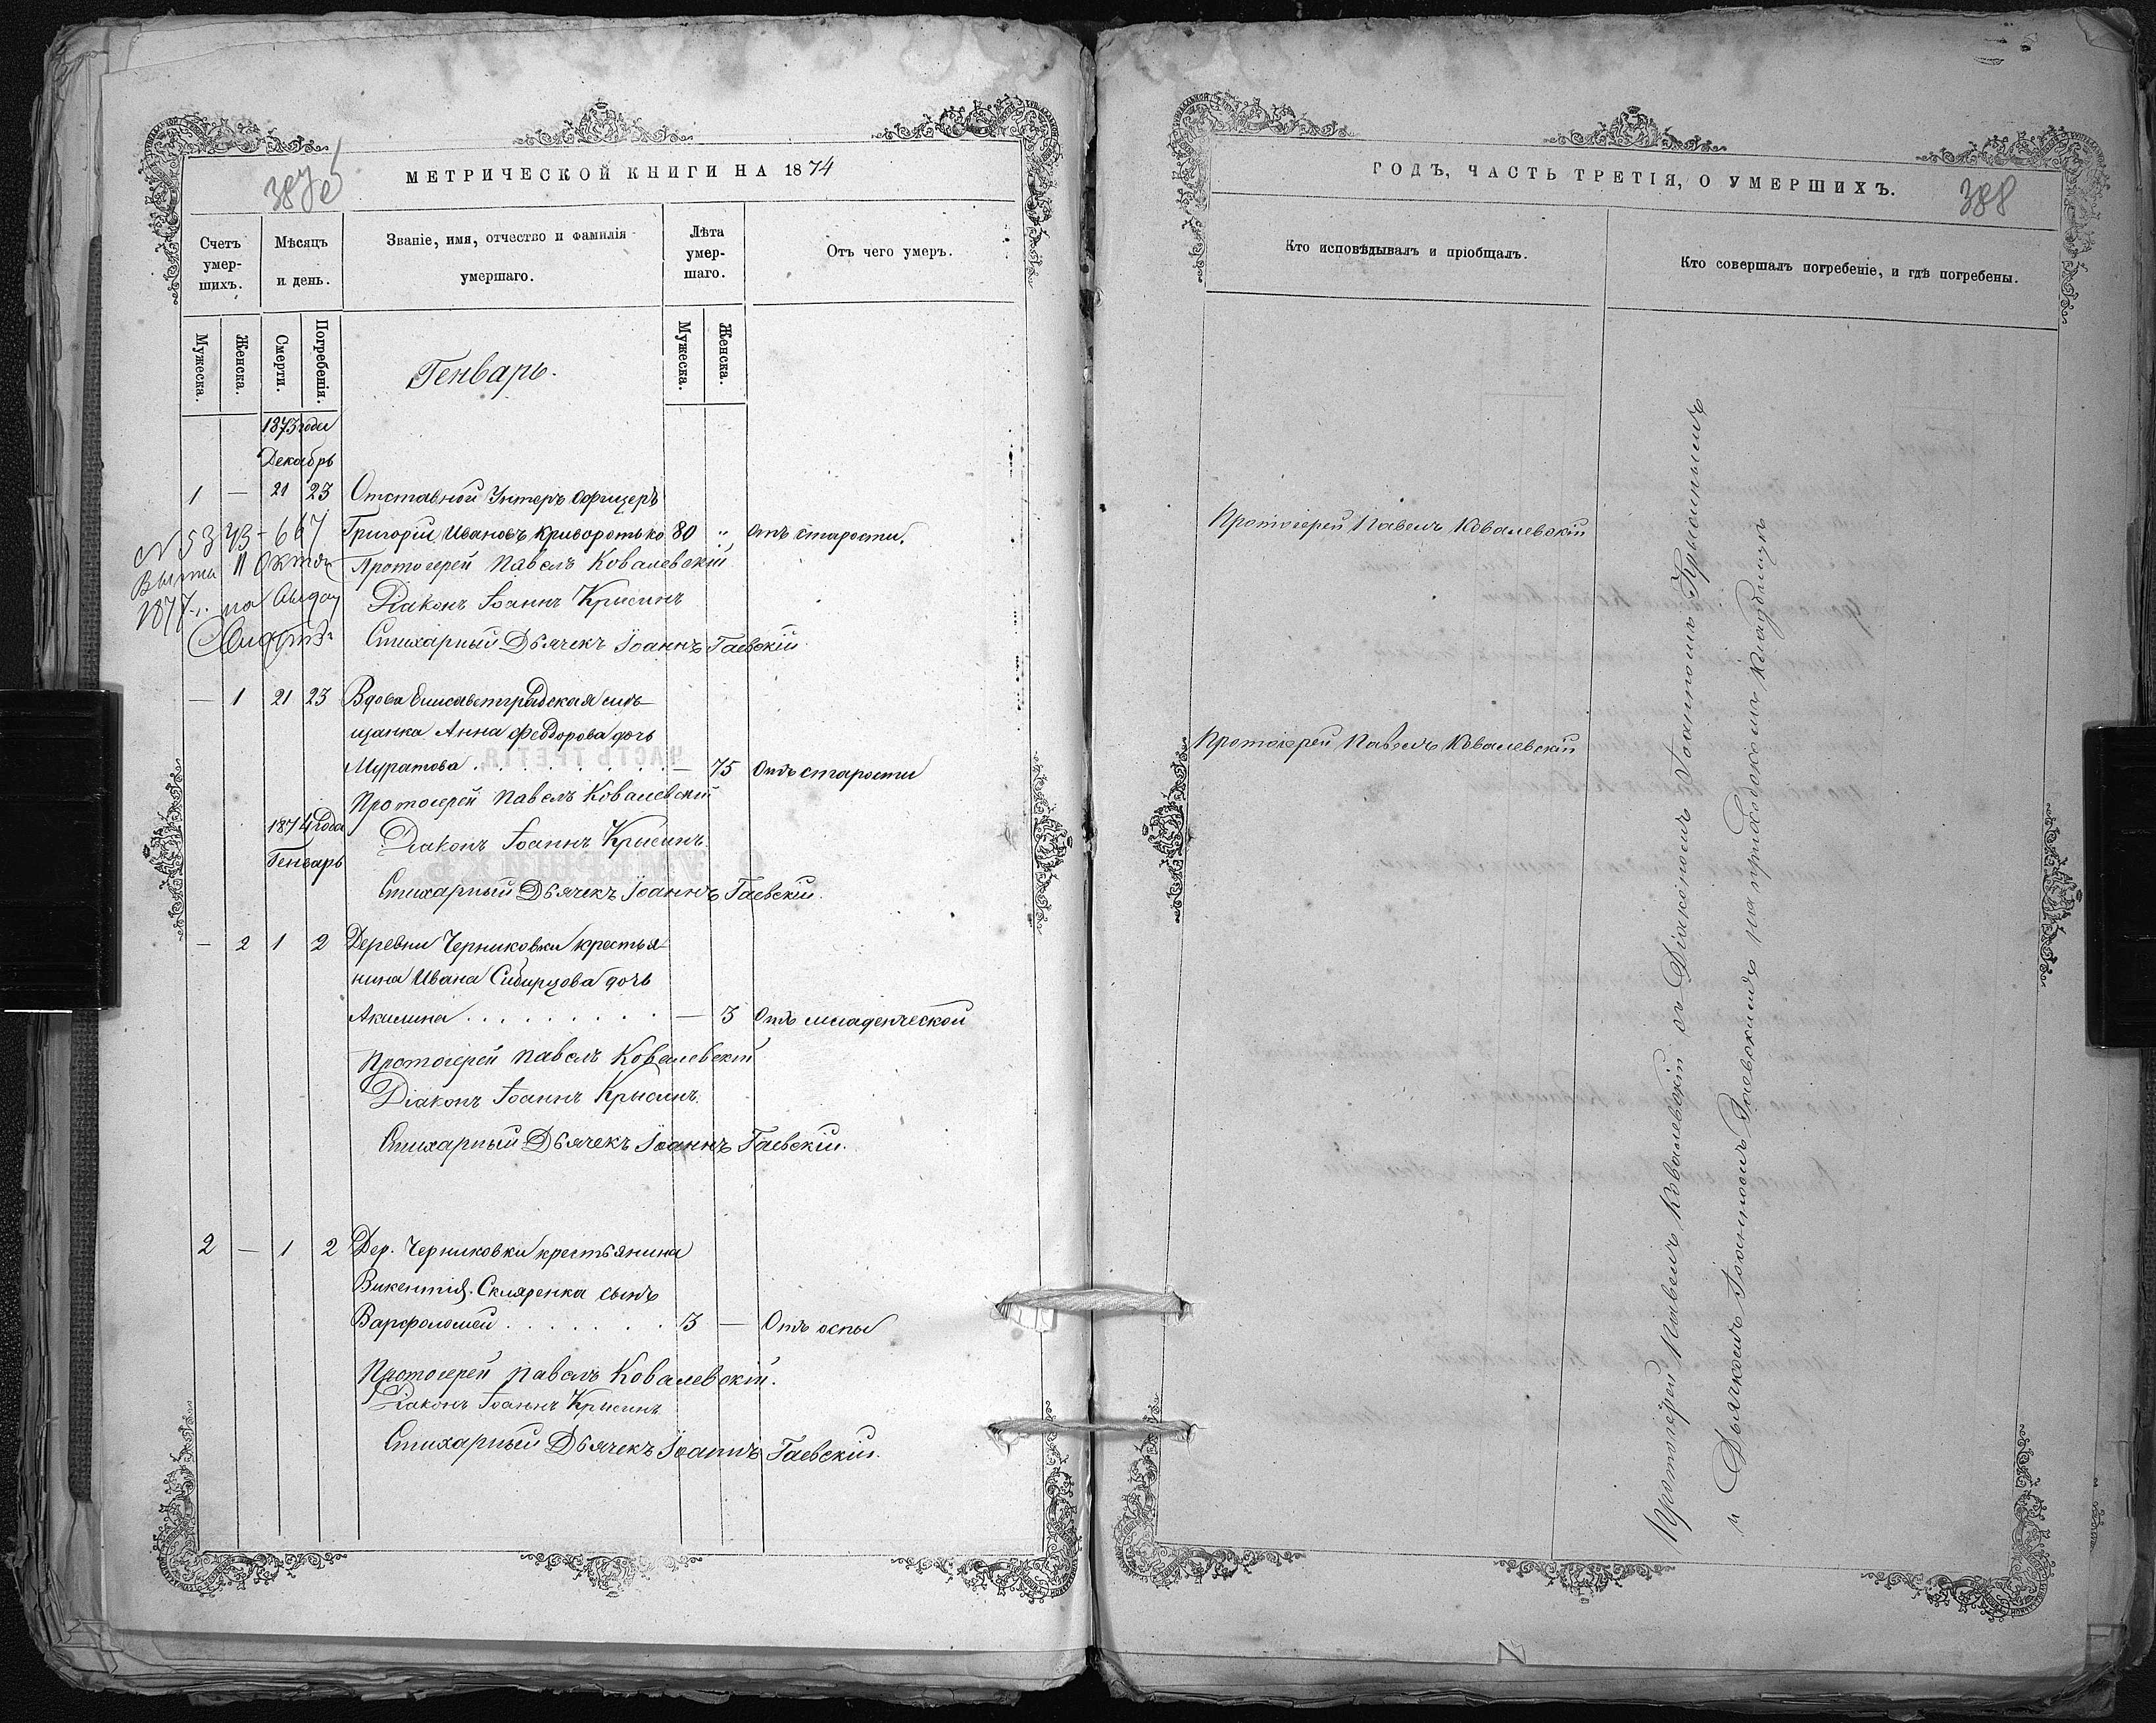 МЕТРИЧЕСКОЙ КНИГИ НА 1874
387
Счетъ умер-шихъ.
Мѣсяцъ и день.
Званіе, имя, отчество и фамилія умершаго.
Лѣта умер-шаго.
Отъ чего умеръ.
Мужеска.
Женска.
Смерти.
Погребенія.
Мужеска.
Женска.
Генварь.
1873 года
Декабрь
1 — 21 23 Отставной Унтеръ Офицеръ
Григорій Ивановъ Криворотько 80 „ Отъ старости.
Протоіерей Павелъ Ковалевскій
Діаконъ Іоаннъ Крысинъ
Стихарный Дьячекъ Іоаннъ Гаевскій.
— 1 21 23 Вдова Елисаветградская мѣ-
щанка Анна Феодорова дочь
Муратова . . . . . . . — 75 Отъ старости
Протоіерей Павелъ Ковалевскій
1874 года
Діаконъ Іоаннъ Крысинъ.
Генварь
Стихарный Дьячекъ Іоаннъ Гаевскій.
— 2 1 2 Деревни Черниковки крестья-
нина Ивана Сибирцова дочь
Акилина . . . . . . . . . — 3 Отъ младенческой
Протоіерей Павелъ Ковалевскій
Діаконъ Іоаннъ Крысинъ.
Стихарный Дьячекъ Іоаннъ Гаевскій.
2 — 1 2 Дер. Черниковки крестьянина
Викентія Скляренка сынъ
Варфоломей . . . . . . . 3 — Отъ оспы
Протоіерей Павелъ Ковалевскій.
Діаконъ Іоаннъ Крысинъ
Стихарный Дьячекъ Іоаннъ Гаевскій.
N 5343-667
11 Октя
1877 г. на
ГОДЪ, ЧАСТЬ ТРЕТІЯ, О УМЕРШИХЪ.
388
Кто исповѣдывалъ и пріобщалъ.
Кто совершалъ погребеніе, и гдѣ погребены.
Протоіерей Павелъ Ковалевскій
Протоіерей Павелъ Ковалевскій
Протоіерей Павелъ Ковалевскій съ Діакономъ Іоанномъ Крысинымъ
и Дьячкомъ Іоанномъ Гаевскимъ на приходскомъ кладбищѣ